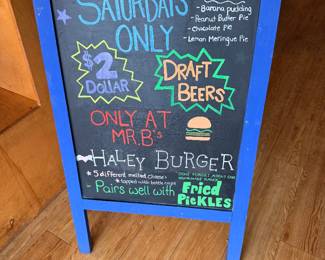 SATURDAYS
ONLY
- Banana pudding
- Peanut Butter Pie
- Chocolate Pie
- Lemon Meringue Pie
$2
DOLLAR
DRAFT
BEERS
ONLY AT
MR.B's
HALEY BURGER
* 5 different melted cheeses
* topped with
- Pairs well with
DON'T FORGET ABOUT OUR
Fried
PicKLES